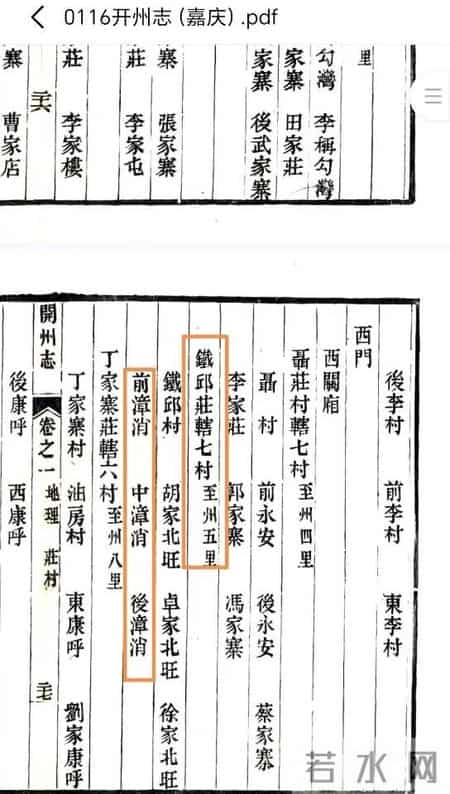 0116开州志（嘉庆）.pdf
里
勾灣 李稱勾灣
家寨 田家莊
家寨 後武家寨
寨 張家寨
莊 李家屯
莊 李家樓
寨 曹家店
後李村 前李村 東李村
西門
西關廂
聶莊村轄七村至州四里
聶村 前永安 後永安 蔡家寨
李家莊 郭家寨 馮家寨
鐵邱莊轄七村至州五里
鐵邱村 胡家北旺 卓家北旺 徐家北旺
前漳消 中漳消 後漳消
丁家寨莊轄六村至州八里
丁家寨村 油房村 東康呼 劉家康呼
開州志 卷之一 地理 莊村
後康呼 西康呼
若水网